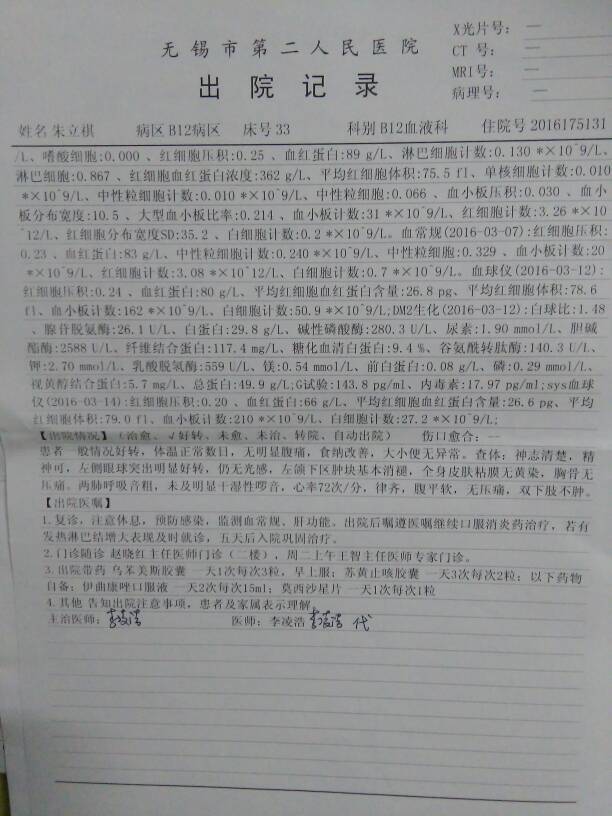 X光片号: —
CT 号: —
MRI号: —
病理号: —
无锡市第二人民医院
出院记录
姓名 朱立祺 病区 B12病区 床号 33 科别 B12血液科 住院号 2016175131
/L、嗜酸细胞:0.000 、红细胞压积:0.25 、血红蛋白:89 g/L、淋巴细胞计数:0.130 *×10^9/L、
淋巴细胞:0.867 、红细胞血红蛋白浓度:362 g/L、平均红细胞体积:75.5 fl、单核细胞计数:0.010
*×10^9/L、中性粒细胞计数:0.010 *×10^9/L、中性粒细胞:0.066 、血小板压积:0.030 、血小
板分布宽度:10.5 、大型血小板比率:0.214 、血小板计数:31 *×10^9/L、红细胞计数:3.26 *×10^
12/L、红细胞分布宽度SD:35.2 、白细胞计数:0.2 *×10^9/L。血常规(2016-03-07):红细胞压积:
0.23 、血红蛋白:83 g/L、中性粒细胞计数:0.240 *×10^9/L、中性粒细胞:0.329 、血小板计数:20
*×10^9/L、红细胞计数:3.08 *×10^12/L、白细胞计数:0.7 *×10^9/L。血球仪(2016-03-12):
红细胞压积:0.24 、血红蛋白:80 g/L、平均红细胞血红蛋白含量:26.8 pg、平均红细胞体积:78.6
fl、血小板计数:162 *×10^9/L、白细胞计数:50.9 *×10^9/L;DM2生化(2016-03-12):白球比:1.48
、腺苷脱氨酶:26.1 U/L、白蛋白:29.8 g/L、碱性磷酸酶:280.3 U/L、尿素:1.90 mmol/L、胆碱
酯酶:2588 U/L、纤维结合蛋白:117.4 mg/L、糖化血清白蛋白:9.4 %、谷氨酰转肽酶:140.3 U/L、
钾:2.70 mmol/L、乳酸脱氢酶:559 U/L、镁:0.54 mmol/L、前白蛋白:0.08 g/L、磷:0.29 mmol/L、
视黄醇结合蛋白:5.7 mg/L、总蛋白:49.9 g/L;G试验:143.8 pg/ml、内毒素:17.97 pg/ml;sys血球
仪(2016-03-14):红细胞压积:0.20 、血红蛋白:66 g/L、平均红细胞血红蛋白含量:26.6 pg、平均
红细胞体积:79.0 fl、血小板计数:210 *×10^9/L、白细胞计数:27.2 *×10^9/L;
【出院情况】(治愈、√好转、未愈、未治、转院、自动出院) 伤口愈合: —
患者一般情况好转，体温正常数日，无明显腹痛，食纳改善，大小便无异常。查体：神志清楚，精
神可，左侧眼球突出明显好转，仍无光感，左颌下区肿块基本消退，全身皮肤粘膜无黄染，胸骨无
压痛。两肺呼吸音粗，未及明显干湿性啰音，心率72次/分，律齐，腹平软，无压痛，双下肢不肿。
【出院医嘱】
1.复诊，注意休息，预防感染，监测血常规、肝功能。出院后嘱遵医嘱继续口服消炎药治疗，若有
发热淋巴结增大表现及时就诊，五天后入院巩固治疗。
2.门诊随诊 赵晓红主任医师门诊（二楼），周二上午王智主任医师专家门诊。
3.出院带药 乌苯美斯胶囊 一天1次每次3粒，早上服；苏黄止咳胶囊 一天3次每次2粒；以下药物
自备：伊曲康唑口服液 一天2次每次15ml；莫西沙星片 一天1次每次1粒
4.其他 告知出院注意事项，患者及家属表示理解
主治医师：李凌浩 医师：李凌浩 李凌浩 代